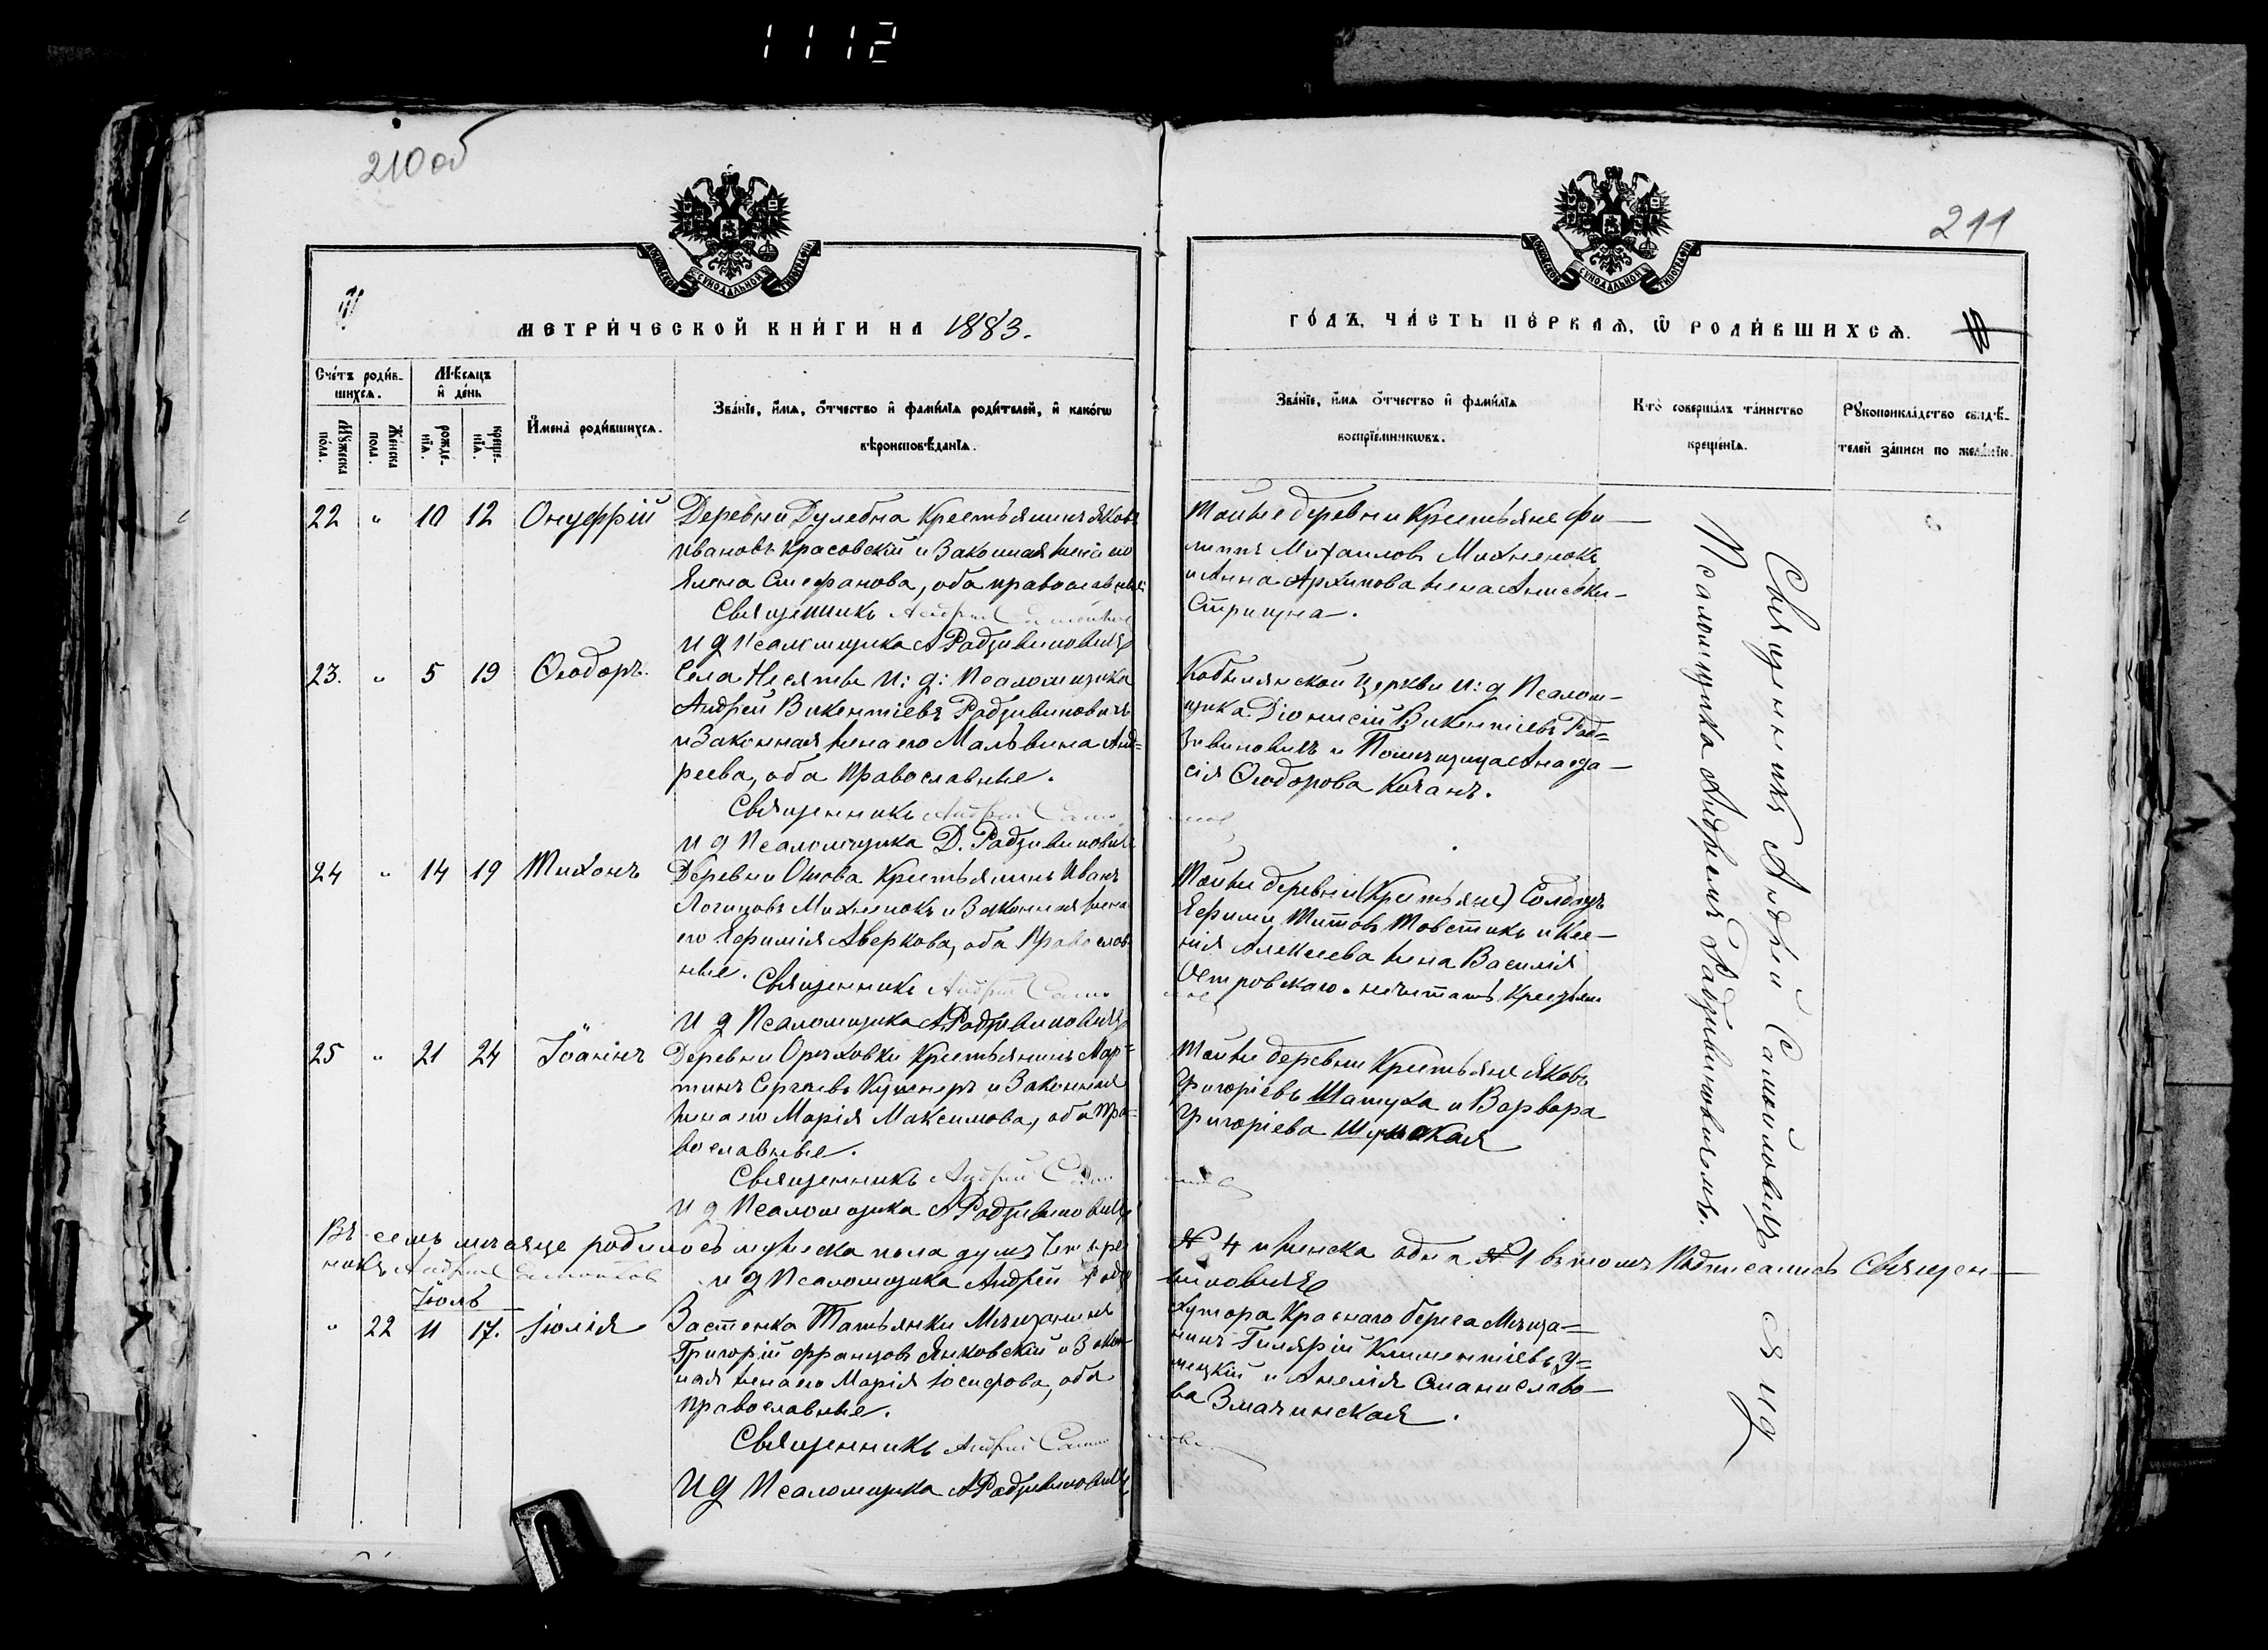 1112
210об
211
МОСКОВСКОЙ СѴНОДАЛЬНОЙ ТИПОГРАФІИ
МОСКОВСКОЙ СѴНОДАЛЬНОЙ ТИПОГРАФІИ
МЕТРИ́ЧЕСКОЙ КНИ́ГИ НА 1883.
ГО́ДЪ, ЧА́СТЬ ПЕ́РВАѦ, Ѡ҆ РОДИ́ВШИХСѦ.
Сче́тъ роди́в-
шихсѧ.
Мꙋ́жеска по́ла.
Же́нска пола.
Мѣ́сѧцъ
и҆ де́нь
рожде-
нїѧ.
креще-
нїѧ.
И҆мена̀ роди́вшихсѧ.
Зва́нїе, и҆́мѧ, ѻ҆́тчество и҆ фами́лїѧ роди́телей, и҆ како́гѡ
вѣроисповѣ́данїѧ.
Зва́нїе, и҆́мѧ ѻ҆́тчество и҆ фами́лїѧ
воспрїе́мникѡвъ.
Кто̀ соверша́лъ та́инство
креще́нїѧ.
Рꙋкоприкла́дство свидѣ́-
телей за́писи по жела́нїю.
22 " 10 12 Онуфрій
Деревни Дулебна Крестьянинъ Яковъ
Ивановъ Красовскій и Законная жена его
Елена Стефанова, оба православные
Священникъ Андрей Самойлов
И д Псаломщика А Радзивиновичъ
Тойже деревни Крестьяне Фи-
липпъ Михаиловъ Михненокъ
и Анна Архипова жена Анисовки-
Стрицуна.
23. " 5 19 Ѳеодоръ.
Села Несяты И: д: Псаломщика
Андрей Викентіевъ Радзивиновичъ
и Законная жена его Мальвина Анд=
реева, оба Православные.
Священникъ Андрей Само
И д Псаломщика Д. Радзивиновичъ
Кобылянской Церкви И: д Псалом-
щика Діонисій Викентіевъ Рад=
зивиновичъ и Помещица Анаста-
сія Ѳеодорова Качанъ.
24 " 14 19 Тихонъ
Деревни Отова Крестьянинъ Иванъ
Логиновъ Михненокъ и Законная жена
его Ефимія Аверкова, оба Православ-
ные. Священникъ Андрей Само
И д Псаломщика А Радзивиновичъ
Тойже деревни (Крестьяне) Солдатъ
Ефимъ Титовъ Товстикъ и Ксе-
нія Алексеева жена Василія
Петровскаго. нечитать Крестьяне
25 " 21 24 Іоаннъ
Деревни Ореховки Крестьянинъ Мар=
тинъ Сергеевъ Кушнеръ и Законная
жена его Марія Максимова, оба пра=
вославные.
Священникъ Андрей Само
И д Псаломщика А Радзивиновичъ
Тойже деревни Крестьяне Яковъ
Григоріевъ Шатуха и Варвара
Григоріева Шумская
Священникъ Андрей Самойловичъ съ и д
Псаломщика Андреемъ Радзивиновичемъ.
Въ семъ месяце родилось мужеска пола душъ четыре № 4 и женска одна № 1 въ томъ Подписались Священ-
никъ Андрей Самойлов И д Псаломщика Андрей Радзивиновичъ
Іюль
" 22 11 17. Іюлія
Застенка Татьянки Мещанинъ
Григорій Францовъ Янковскій и Закон-
ная жена его Марія Іосифова, оба
Православные.
Священникъ Андрей Само
И д Псаломщика А Радзивиновичъ
Хутора Краснаго берега Меща=
нинъ Гилярій Климентіевъ У=
мецкій и Анелія Станиславо-
ва Змачинская.